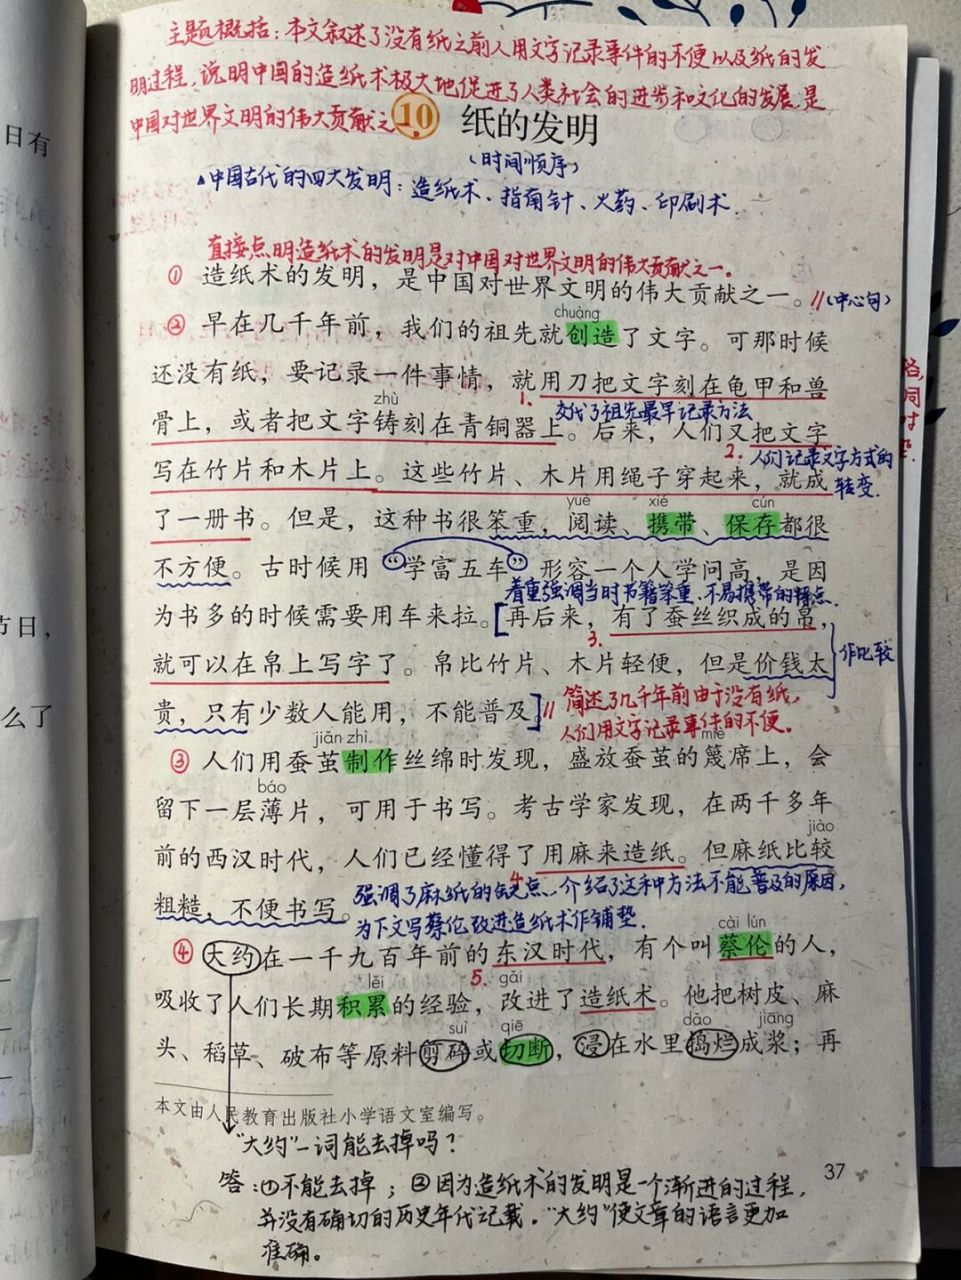 主题概括：本文叙述了没有纸之前人用文字记录事件的不便以及纸的发
明过程，说明中国的造纸术极大地促进了人类社会的进步和文化的发展，是
中国对世界文明的伟大贡献之一.
10 纸的发明
（时间顺序）
▲中国古代的四大发明：造纸术、指南针、火药、印刷术.
直接点明造纸术的发明是对中国对世界文明的伟大贡献之一。
① 造纸术的发明，是中国对世界文明的伟大贡献之一。//（中心句）
chuàng
② 早在几千年前，我们的祖先就创造了文字。可那时候
还没有纸，要记录一件事情，就用刀把文字刻在龟甲和兽
zhù
1. 交代了祖先最早记录方法
骨上，或者把文字铸刻在青铜器上。后来，人们又把文字
2. 人们记录文字方式的
转变.
写在竹片和木片上。这些竹片、木片用绳子穿起来，就成
yuè xié cún
了一册书。但是，这种书很笨重，阅读、携带、保存都很
不方便。古时候用“学富五车”形容一个人学问高，是因
着重强调当时书籍笨重、不易携带的特点.
为书多的时候需要用车来拉。[再后来，有了蚕丝织成的帛，
3.
就可以在帛上写字了。帛比竹片、木片轻便，但是价钱太
作比较
贵，只有少数人能用，不能普及。]//
简述了几千年前由于没有纸，
人们用文字记录事件的不便。
jiǎn zhì miè
③ 人们用蚕茧制作丝绵时发现，盛放蚕茧的篾席上，会
báo
留下一层薄片，可用于书写。考古学家发现，在两千多年
jiào
前的西汉时代，人们已经懂得了用麻来造纸。但麻纸比较
4.
粗糙，不便书写。
强调了麻纸的缺点，介绍了这种方法不能普及的原因，
为下文写蔡伦改进造纸术作铺垫.
cài lún
④ 大约在一千九百年前的东汉时代，有个叫蔡伦的人，
lěi 5. gǎi
吸收了人们长期积累的经验，改进了造纸术。他把树皮、麻
suì qiē dǎo jiāng
头、稻草、破布等原料剪碎或切断，浸在水里捣烂成浆；再
本文由人民教育出版社小学语文室编写。
“大约”一词能去掉吗？
答：①不能去掉；②因为造纸术的发明是一个渐进的过程，
并没有确切的历史年代记载。“大约”使文章的语言更加
准确。
37
日有
节日，
么了